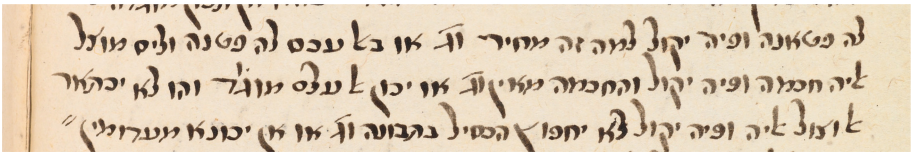 לה פטאנה ופיה יקול למה זה מחיר וג' או באלעכס לה פטנה וליס מוצל
אליה חכמה ופיה יקול והחכמה מאין וג' או יכון אלעלם מוג'ד והו לא יכתאר
אלוצול אליה ופיה יקול לא יחפוץ הכסיל בתבונה וג' או אן יכונא מערומין